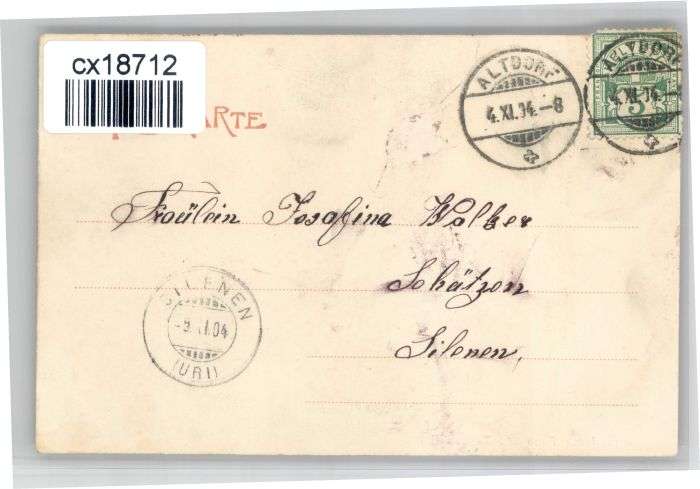 cx18712
ARTE
ALTDORF
4.XI.04.-8
ALTDORF
4.XI.04.
5
Fräulein Josefina Walker
Schätzen
Silenen,
SILENEN
XI.04
(URI)